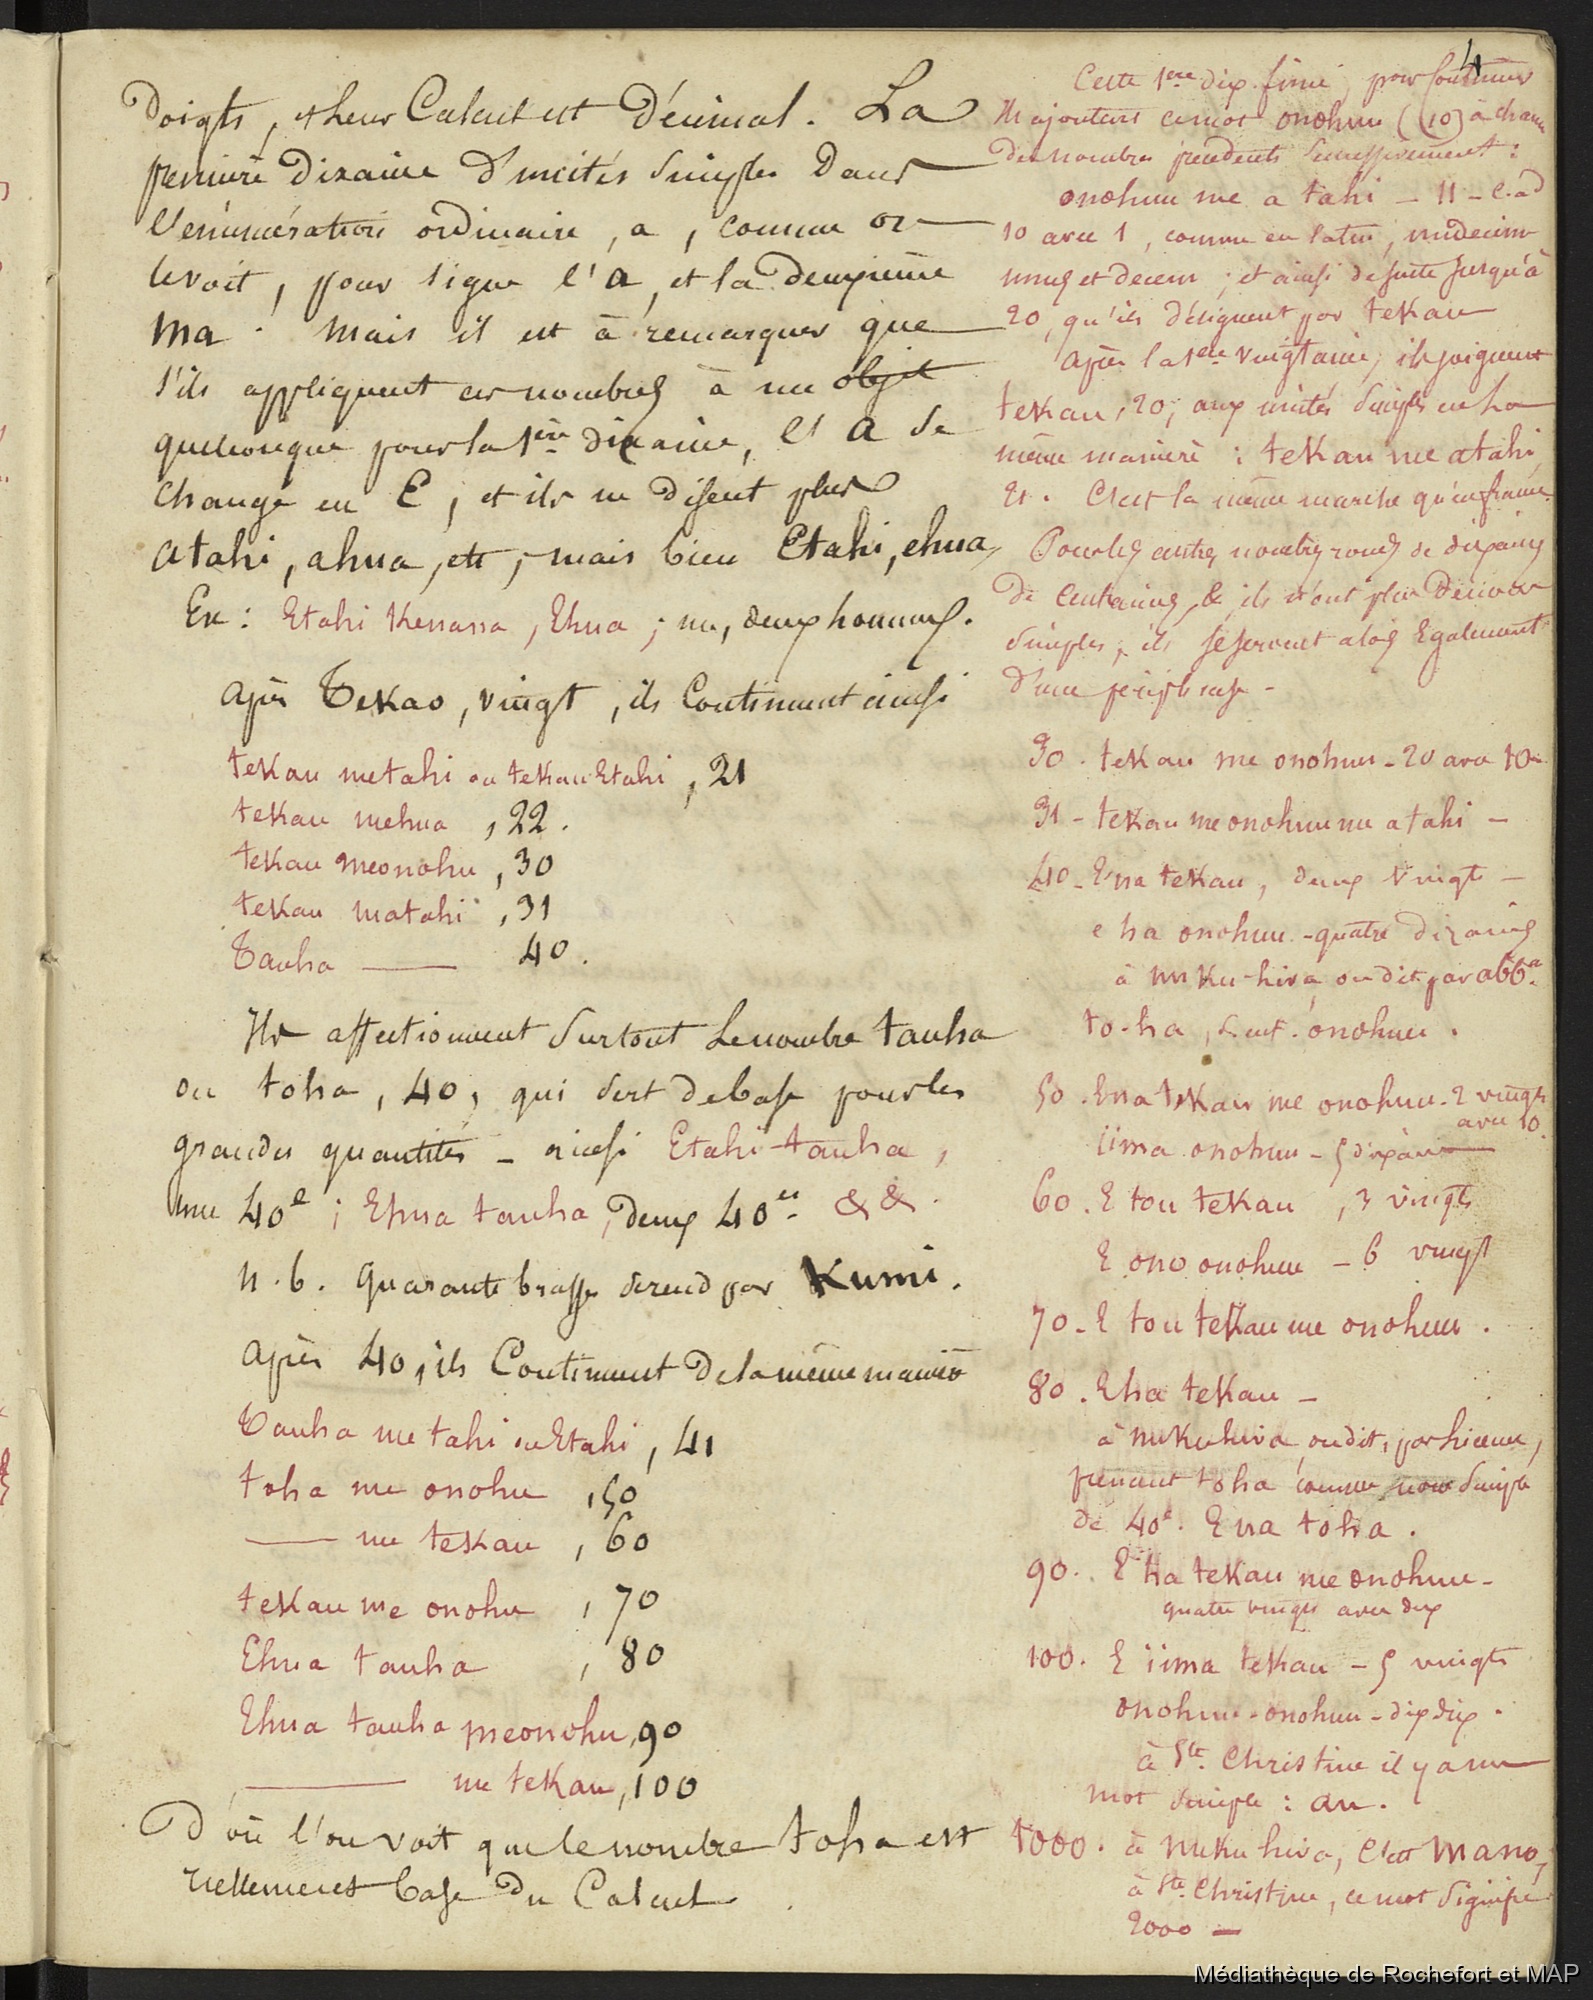 4
Doigts, et leur Calcul est Décimal. La
premiere Dizaine d'unités simples Dans
l'énumération ordinaire, a, comme on
le voit, pour signe l'a, et la deuxieme
ma. Mais il est à remarquer que
s'ils appliquent ces nombres à un objet
quelconque pour la 1ère dizaine, l'a se
change en E, et ils ne disent plus
atahi, ahua, etc, mais bien Etahi, ehua,
Ex: Etahi Kenana, Ehua; un, deux hommes.
après Tekao, vingt, ils Continuent ainsi
tekau metahi ou tekau Etahi, 21
tekau mehua, 22.
tekau meonohu, 30
tekau matahi, 31
Tauha — 40.
Ils affectionnent surtout le nombre tauha
ou toha, 40, qui sert de base pour les
grandes quantités - ainsi Etahi-tauha,
une 40e; Ehua tauha, deux 40es. & &.
n.b. Quarante brasses se rend par Kumi.
après 40, ils Continuent de la même manière
Tauha me tahi ou Etahi, 41
toha me onohu, 50
— me tekau, 60
tekau me onohu, 70
Ehua tauha, 80
Ehua tauha meonohu, 90
— me tekau, 100
D'où l'on voit que le nombre toha est
réellement base du Calcul.
Cette 1ere dix. finie, pour continuer
ils ajoutent ce mot onohuu (10) à chacun
des nombres précédents successivement:
onohuu me a tahi - 11 - c.à d
10 avec 1, comme en latin, undecim
unus et decem; et ainsi de suite jusqu'à
20, qu'ils désignent par tekau
après la 1ere vingtaine, ils joignent
tekau, 20, aux unités simples en la
même maniere: tekau me atahi,
21. C'est la même marche qu'en français.
Pour les autres nombres ronds de dixaines
de Centaines, &, ils n'ont plus de noms
simples, ils se servent alors Egalement
d'une périphrase -
30. tekau me onohuu - 20 avec 10
31 - tekau me onohuu me atahi -
40 - E'ua tekau, deux vingts -
e ha onohuu - quatre dizaines
à nuku-hiva, on dit par abb.on
to-ha, sent. onohuu.
50. Eua tekau me onohuu - 2 vingts
avec 10.
iima onohuu - 5 dixaines
60. E tou tekau, 3 vingts
E ono onohuu - 6 vingt
70 - E tou tekau me onohuu.
80. Eha tekau -
à nukuhiva, on dit,
prenant toha comme nom simple
de 40e. E ua toha.
90. E ha tekau me onohuu -
quatre vingts avec dix
100. E iima tekau - 5 vingts
onohuu - onohuu - dix dix.
à Ste. Christine il y a un
mot simple: au.
1000. à Nuku hiva, C'est Mano,
à Ste. Christine, ce mot signifie
2000 —
Médiathèque de Rochefort et MAP